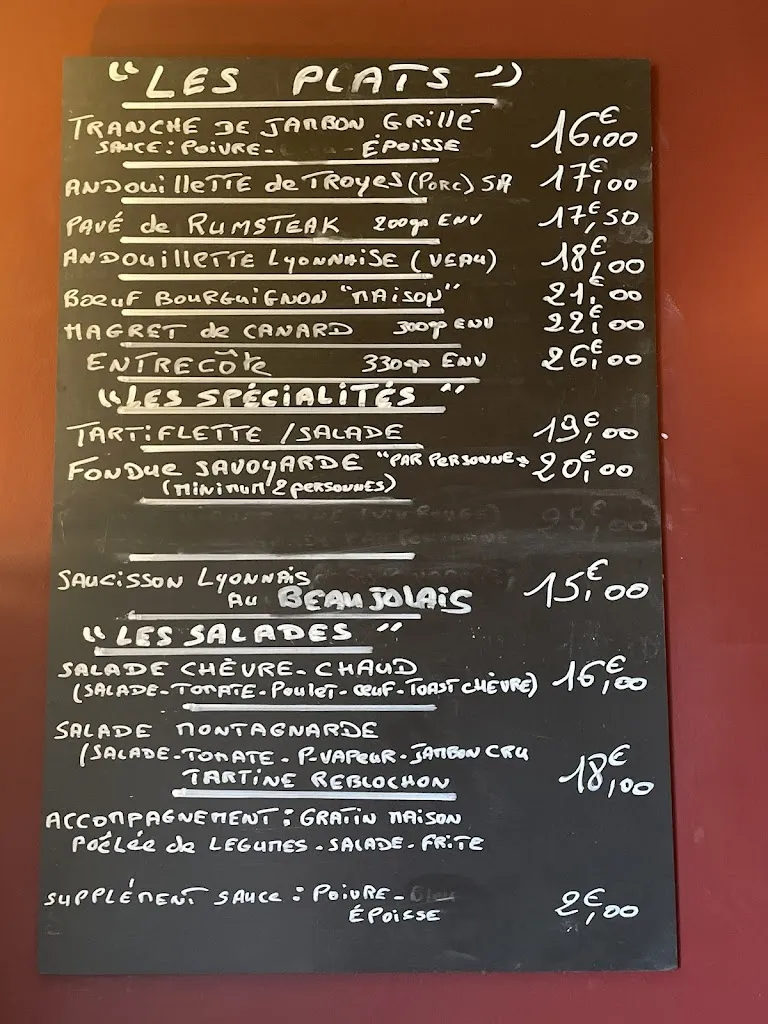 "LES PLATS"
TRANCHE DE JAMBON GRILLÉ 16€,00
SAUCE: POIVRE- - ÉPOISSE
ANDOUILLETTE de TROYES (PORC) 17€,00
PAVÉ de RUMSTEAK 200gr ENV 17€,50
ANDOUILLETTE LYONNAISE (VEAU) 18€,00
BŒUF BOURGUIGNON "MAISON" 21€,00
MAGRET de CANARD 300gr ENV 22€,00
ENTRECÔTE 330gr ENV 26€,00
"LES SPÉCIALITÉS"
TARTIFLETTE /SALADE 19€,00
FONDUE SAVOYARDE "PAR PERSONNE" 20€,00
(MINIMUM 2 PERSONNES)
25€,00
SAUCISSON LYONNAIS 15€,00
AU BEAUJOLAIS
"LES SALADES"
SALADE CHÈVRE-CHAUD 16€,00
(SALADE-TOMATE-POULET-ŒUF-TOAST CHÈVRE)
SALADE MONTAGNARDE
(SALADE-TOMATE-P-VAPEUR-JAMBON CRU 18€,00
TARTINE REBLOCHON
ACCOMPAGNEMENT: GRATIN MAISON
POÊLÉE de LEGUMES-SALADE-FRITE
SUPPLÉMENT SAUCE: POIVRE- 2€,00
ÉPOISSE